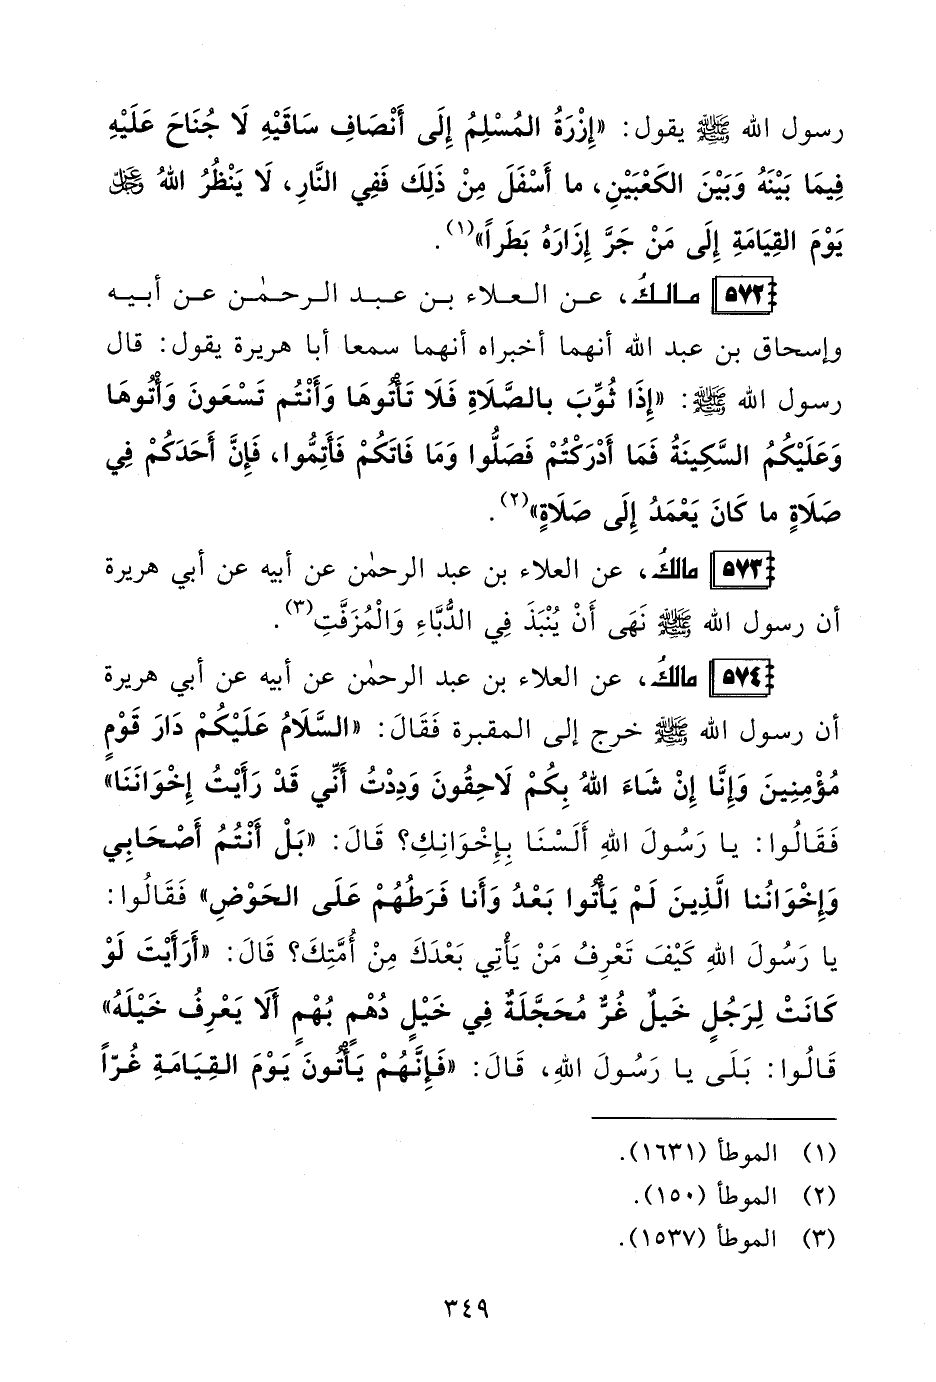 رسول الله ﷺ يقول: «إِزْرَةُ المُسْلِمُ إِلَى أَنْصَافِ سَاقَيْهِ لَا جُنَاحَ عَلَيْهِ
فِيمَا بَيْنَهُ وَبَيْنَ الكَعْبَيْنِ، ما أَسْفَلَ مِنْ ذَلِكَ فَفِي النَّارِ، لَا يَنْظُرُ اللهُ عَزَّ وَجَلَّ
يَوْمَ القِيَامَةِ إِلَى مَنْ جَرَّ إِزَارَهُ بَطَراً»(١).
٥٧٢ مالكٌ، عن العلاء بن عبد الرحمٰن عن أبيه
وإسحاق بن عبد الله أنهما أخبراه أنهما سمعا أبا هريرة يقول: قال
رسول الله ﷺ: «إِذَا ثُوِّبَ بالصَّلَاةِ فَلَا تَأْتُوهَا وَأَنْتُم تَسْعَونَ وَأْتُوهَا
وَعَلَيْكُمُ السَّكِينَةُ فَمَا أَدْرَكْتُمْ فَصَلُّوا وَمَا فَاتَكُمْ فَأَتِمُّوا، فَإِنَّ أَحَدَكُمْ فِي
صَلَاةٍ ما كَانَ يَعْمَدُ إِلَى صَلَاةٍ»(٢).
٥٧٣ مالكٌ، عن العلاء بن عبد الرحمٰن عن أبيه عن أبي هريرة
أن رسول الله ﷺ نَهَى أَنْ يُنْبَذَ فِي الدُّبَّاءِ وَالْمُزَفَّتِ(٣).
٥٧٤ مالكٌ، عن العلاء بن عبد الرحمٰن عن أبيه عن أبي هريرة
أن رسول الله ﷺ خرج إلى المقبرة فَقَالَ: «السَّلَامُ عَلَيْكُمْ دَارَ قَوْمٍ
مُؤْمِنِينَ وَإِنَّا إِنْ شَاءَ اللهُ بِكُمْ لَاحِقُونَ وَدِدْتُ أَنِّي قَدْ رَأَيْتُ إِخْوَانَنَا»
فَقَالُوا: يا رَسُولَ اللهِ أَلَسْنَا بِإِخْوَانِكِ؟ قَالَ: «بَلْ أَنْتُمُ أَصْحَابِي
وَإِخْوَانُنا الَّذِينَ لَمْ يَأْتُوا بَعْدُ وَأَنا فَرَطُهُمْ عَلَى الحَوْضِ» فَقَالُوا:
يا رَسُولَ اللهِ كَيْفَ تَعْرِفُ مَنْ يَأْتِي بَعْدَكَ مِنْ أُمَّتِكَ؟ قَالَ: «أَرَأَيْتَ لَوْ
كَانَتْ لِرَجُلٍ خَيلٌ غُرٌّ مُحَجَّلَةٌ فِي خَيْلٍ دُهْمٍ بُهْمٍ أَلَا يَعْرِفُ خَيْلَهُ»
قَالُوا: بَلَى يا رَسُولَ اللهِ، قَالَ: «فَإِنَّهُمْ يَأْتُونَ يَوْمَ القِيَامَةِ غُرّاً
(١) الموطأ (١٦٣١).
(٢) الموطأ (١٥٠).
(٣) الموطأ (١٥٣٧).
٣٤٩